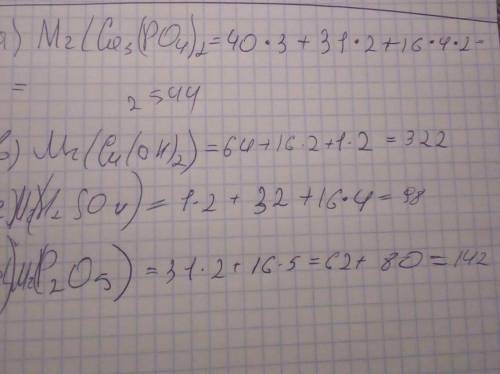 а) Mr(Ca₃(PO₄)₂=40·3+31·2+16·4·2=
= 2544
в) Mr(Cu(OH)₂)=64+16·2+1·2=322
Mr(H₂SO₄)=1·2+32+16·4=98
Mr(P₂O₅)=31·2+16·5=62+80=142